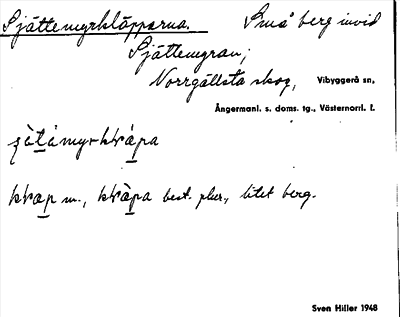 Sjättemyrkläpparna. Små berg invid
Sjättemyran;
Norrgällsta skog, Vibyggerå sn,
Ångermanl. s. doms. tg., Västernorrl. l.
best. plur., litet berg.
Sven Hiller 1948